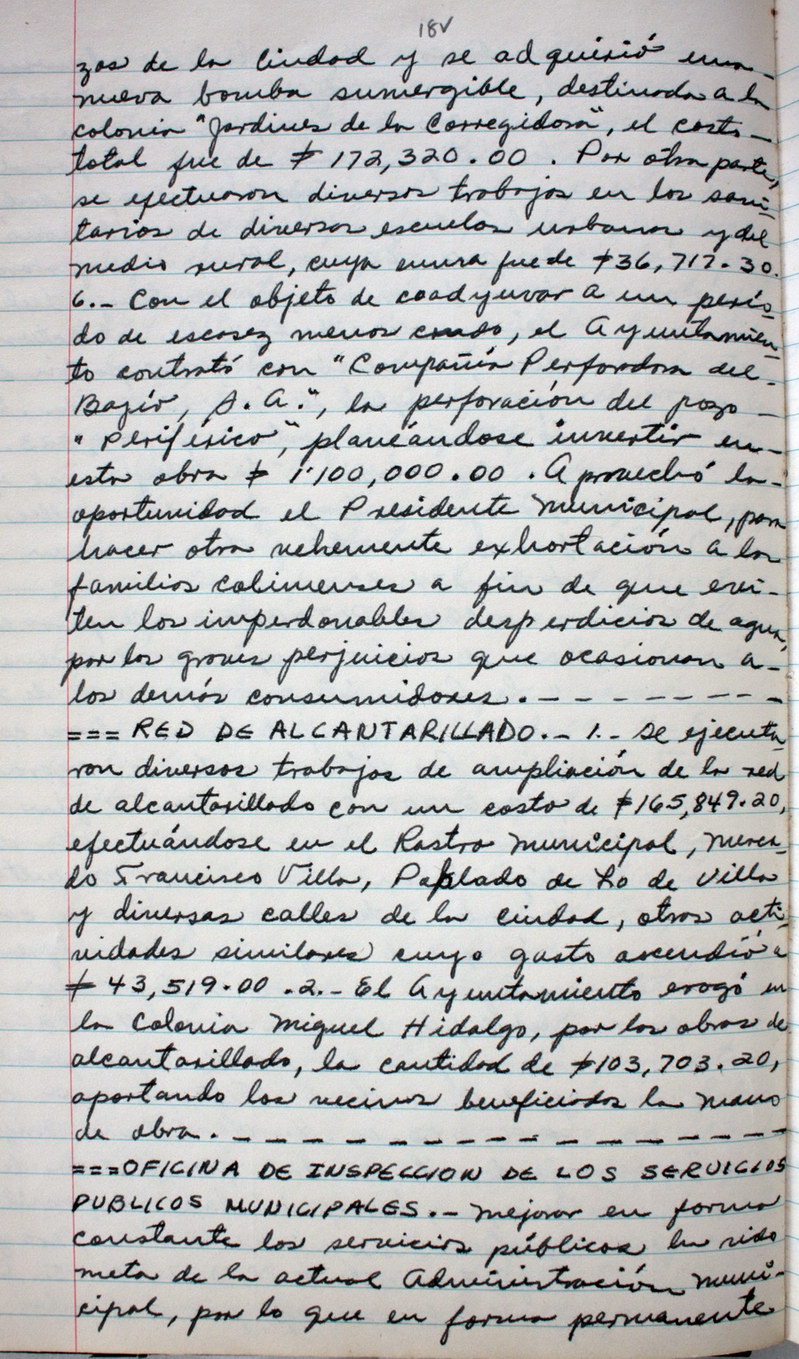 18v
zas de la Ciudad y se adquirió una-
nueva bomba sumergible, destinada a la
colonia "Jardines de la Corregidora", el costo-
total fue de $ 172,320.00 . Por otra parte,
se efectuaron diversos trabajos en los sani-
tarios de diversas escuelas urbanas y del
medio rural, cuya suma fue de $36,717.30.
6.- Con el objeto de coadyuvar a un perío-
do de escasez menos crudo, el Ayuntamien-
to contrató con "Compañía Perforadora del-
Bajío, S.A.", la perforación del pozo -
"Periférico", planeándose invertir en-
esta obra $ 1'100,000.00 . Aprovechó la-
oportunidad el Presidente Municipal, para
hacer otra vehemente exhortación a las
familias colimenses a fin de que evi-
ten los imperdonables desperdicios de agua,
por los graves perjuicios que ocasionan a-
los demás consumidores.- - - - - - - - -
=== RED DE ALCANTARILLADO.- 1.- Se ejecuta-
ron diversos trabajos de ampliación de la red
de alcantarillado con un costo de $165,849.20,
efectuándose en el Rastro Municipal, Merca-
do Francisco Villa, Poblado de Lo de Villa
y diversas calles de la ciudad, otras acti-
vidades similares cuyo gasto ascendió a
$ 43,519.00 .2.- El Ayuntamiento erogó en
la Colonia Miguel Hidalgo, por las obras de
alcantarillado, la cantidad de $103,703.20,
aportando los vecinos beneficiados la mano
de obra.- - - - - - - - - - - - - - - - -
===OFICINA DE INSPECCION DE LOS SERVICIOS
PUBLICOS MUNICIPALES.- Mejorar en forma
constante los servicios públicos ha sido
meta de la actual Administración Muni-
cipal, por lo que en forma permanente